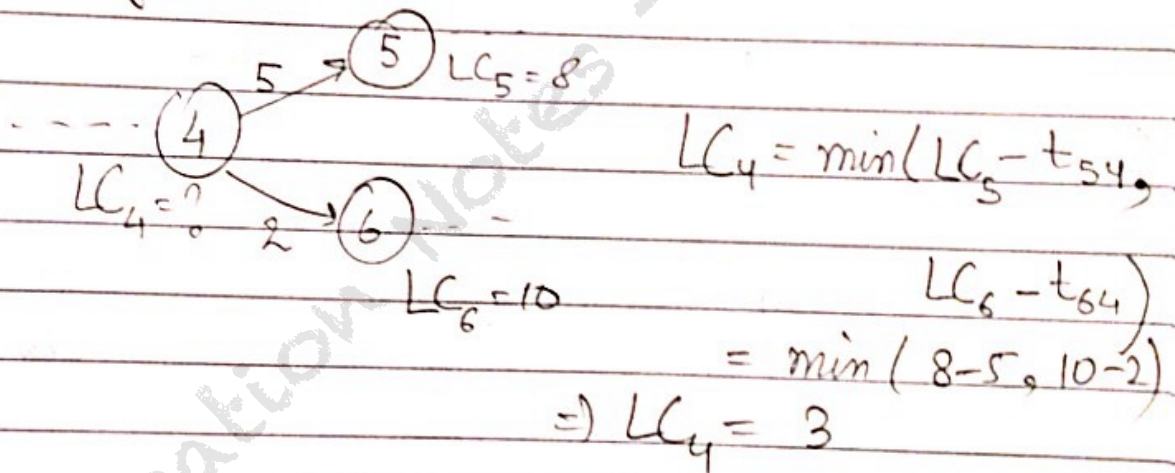 5
5
LC₅ = 8
4
LC₄ = ?
2
6
LC₆ = 10
LC₄ = min(LC₅ - t₅₄,
LC₆ - t₆₄)
= min(8-5, 10-2)
=) LC₄ = 3
ation Notes